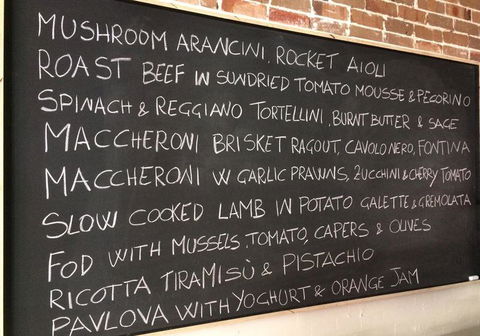 MUSHROOM ARANCINI, ROCKET AIOLI
ROAST BEEF W SUNDRIED TOMATO MOUSSE & PECORINO
SPINACH & REGGIANO TORTELLINI, BURNT BUTTER & SAGE
MACCHERONI BRISKET RAGOUT, CAVOLONERO, FONTINA
MACCHERONI W GARLIC PRAWNS, ZUCCHINI & CHERRY TOMATO
SLOW COOKED LAMB IN POTATO GALETTE & GREMOLATA
FOD WITH MUSSELS, TOMATO, CAPERS & OLIVES
RICOTTA TIRAMISÙ & PISTACHIO
PAVLOVA WITH YOGHURT & ORANGE JAM